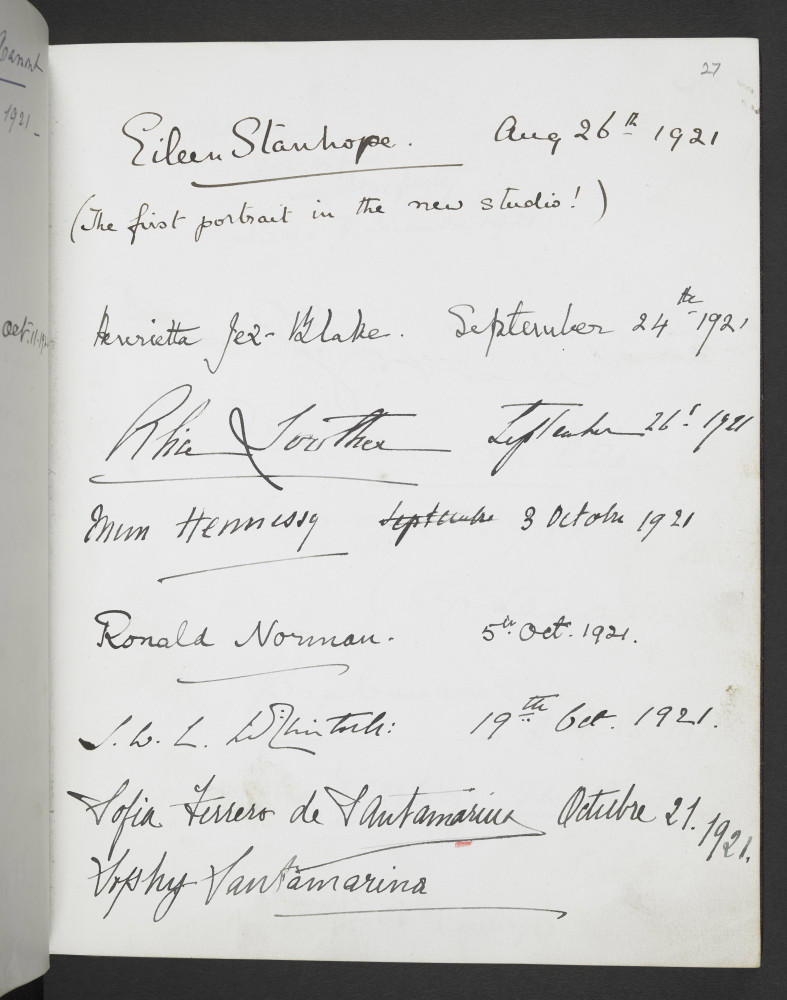 27
Eileen Stanhope. Aug 26th 1921
(The first portrait in the new studio!)
Henrietta Jex-Blake. September 24th 1921
September 26t 1921
Mim Hennessy Septembre 3 Octobre 1921
Ronald Norman. 5th Oct. 1921.
J. W. L. 19th Oct. 1921.
Sofia Ferrero de Santamarina Octubre 21. 1921.
Sophy Santamarina
1921
Oct. 11